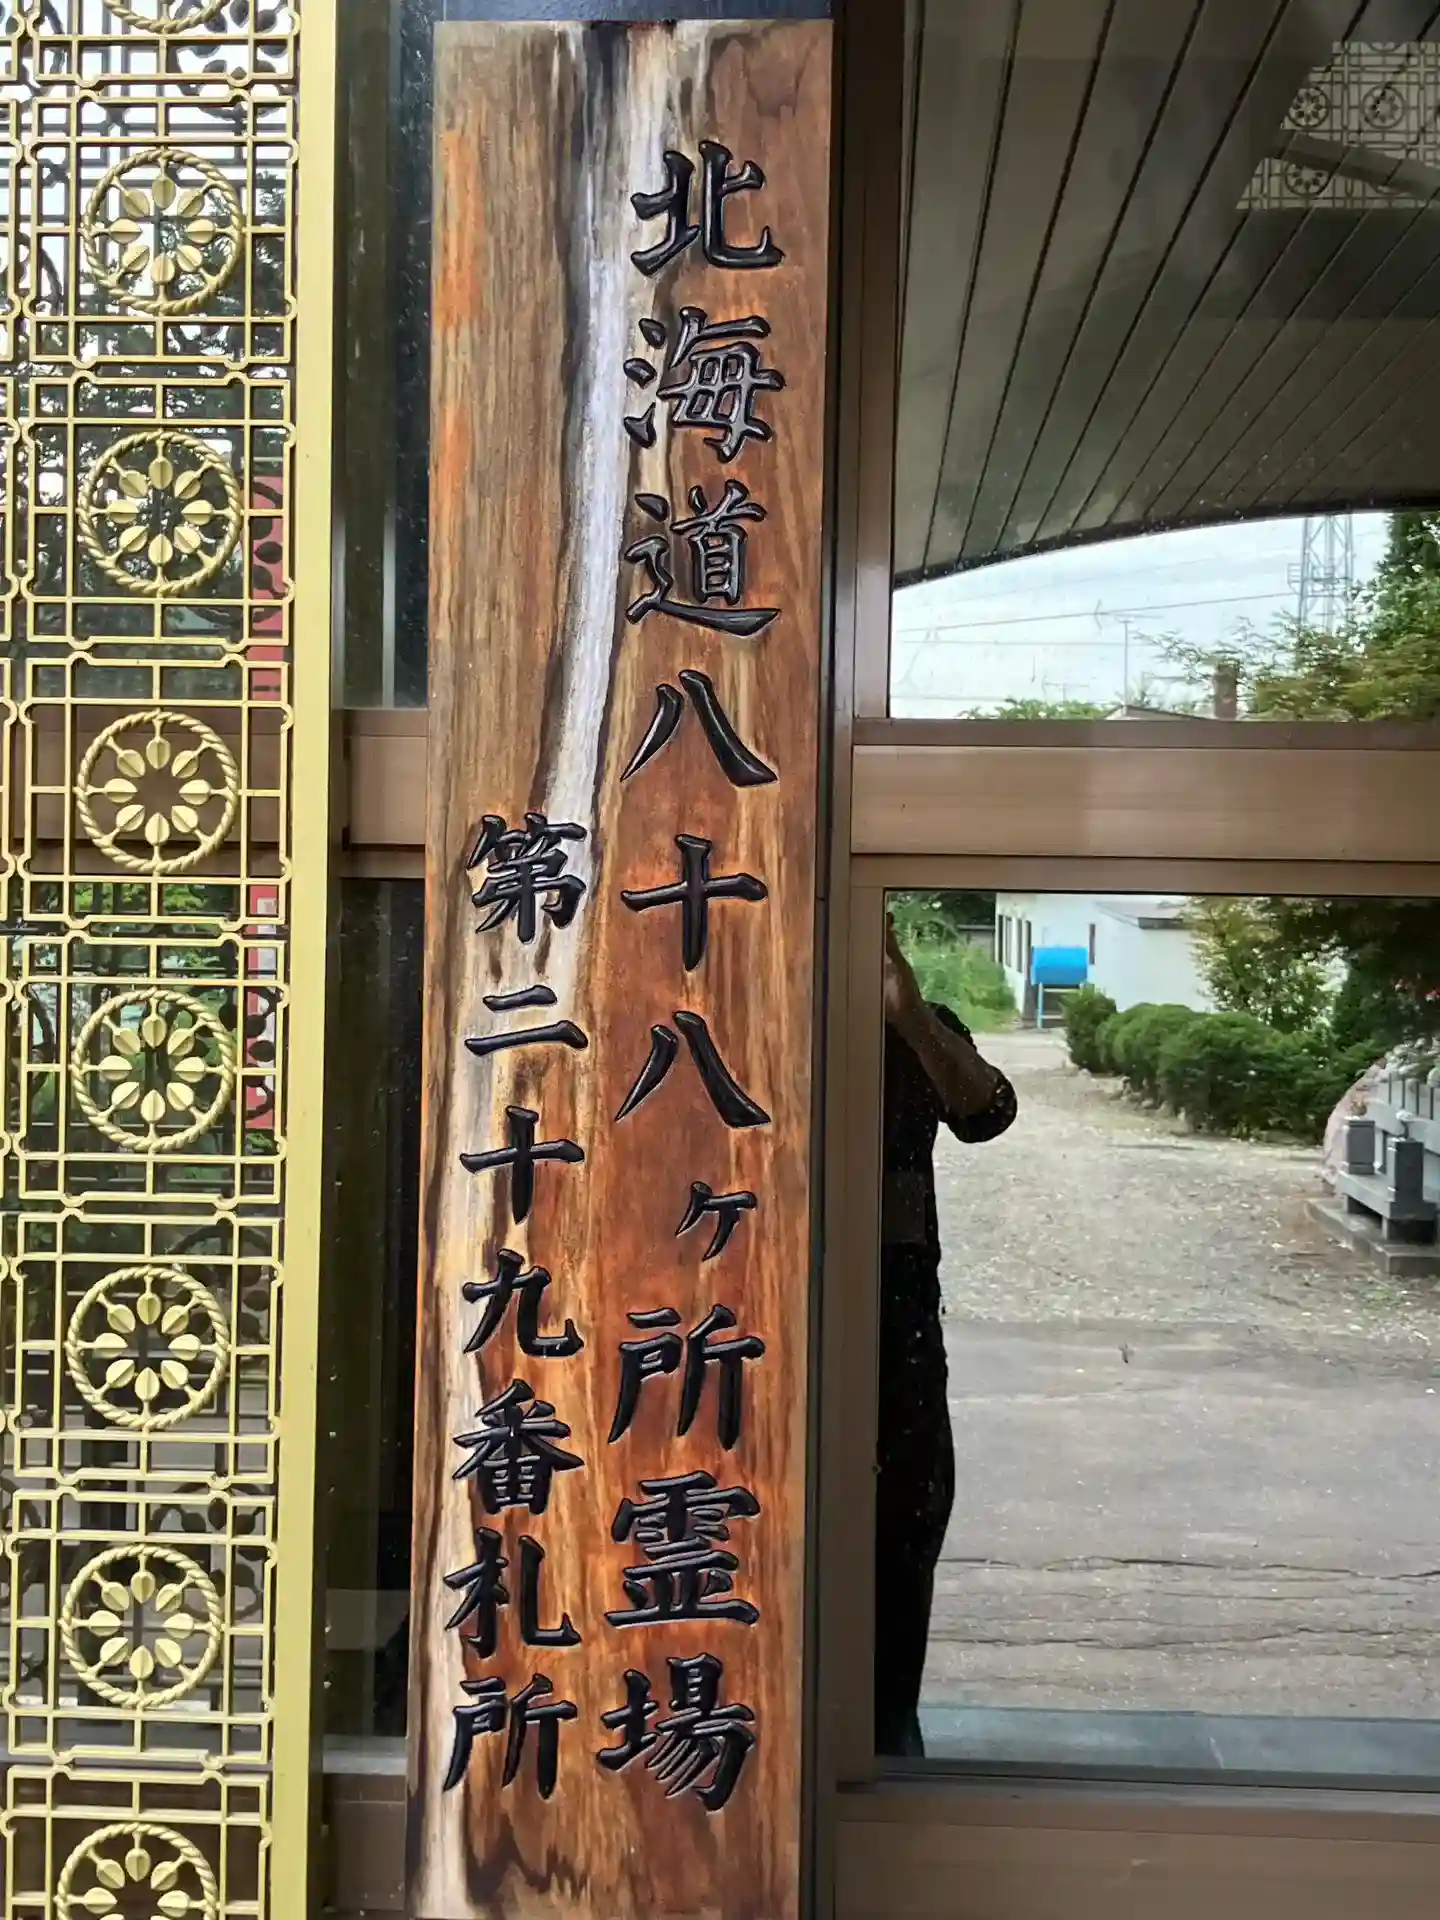 北海道八十八ヶ所霊場
第二十九番札所